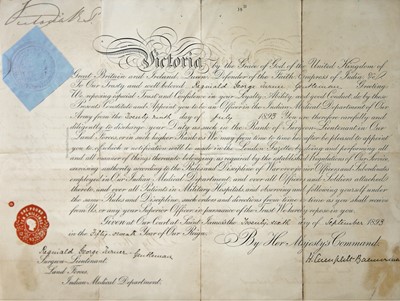 Victoria R I
Victoria by the Grace of God, of the United Kingdom of
Great Britain and Ireland, Queen, Defender of the Faith, Empress of India, &c.
To Our Trusty and well beloved Reginald George Turner Gentleman Greeting:
We, reposing especial Trust and Confidence in your Loyalty, Ability and good Conduct, do by these
Presents Constitute and Appoint you to be an Officer in the Indian Medical Department of Our
Army from the Twenty ninth day of July 1893. You are therefore carefully and
diligently to discharge your Duty as such in the Rank of Surgeon Lieutenant in Our
Land Forces or in such higher Rank as We may from time to time hereafter be pleased to appoint
you to, of which a notification will be made in the London Gazette, by doing and performing all
and all manner of things thereunto belonging as required by the established Regulations of Our Service,
exercising authority according to the Rules and Discipline of War over all Officers and Subordinates
employed in Our Indian Medical Department, and over all Officers and Soldiers attached
thereto, and over all Patients in Military Hospitals, and observing and following yourself under
the same Rules and Discipline, such orders and directions from time to time as you shall receive
from Us, or any your Superior Officer in pursuance of the Trust We hereby repose in you.
Given at Our Court at Saint James's the day of September 1893
in the Fifty seventh Year of Our Reign
By Her Majesty's Command
H Campbell Bannerman
Reginald George Turner Gentleman
Surgeon Lieutenant
Land Forces
Indian Medical Department